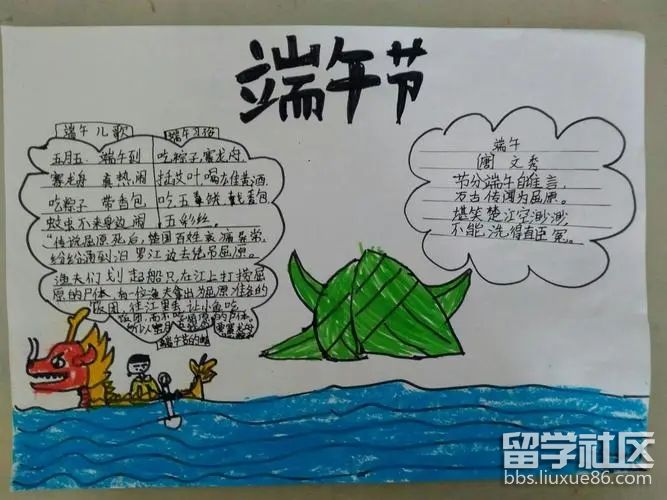 端午节
端午儿歌
端午习俗
五月五 端午到
赛龙舟 真热闹
吃粽子 带香包
蚊虫不来身边闹
吃粽子,赛龙舟,
挂艾叶喝雄黄酒,
吃五 戴香包
五彩丝。
"传说屈原死后,楚国百姓哀痛异常,
纷纷涌到汨罗江边去凭吊屈原。
渔夫们划起船只,在江上打捞屈
原的尸体,有一位渔夫拿出为屈原准备的
饭团,往江里丢,让小鱼吃
端午节的
端午
唐 文秀
节分端午自谁言,
万古传闻为屈原。
堪笑楚江空渺渺,
不能洗得直臣冤。
留学社区
bbs.liuxue86.com